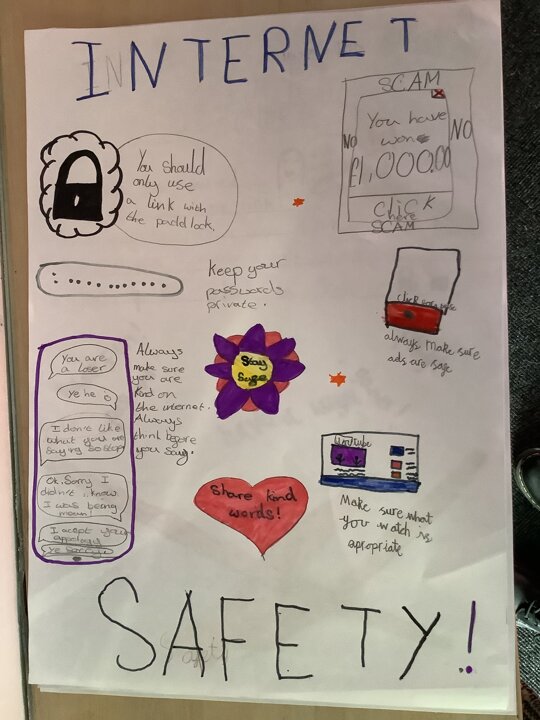 INTERNET
SCAM
You have
won
£1,000.00
NO
NO
CLiCK
here
SCAM
You should
only use
a link with
the paddlock.
Keep your
passwords
private.
always make sure
ads are sage
You are
a loser
I don't like
what you are
saying so stop
Ok. Sorry I
didn't know
I was being
mean!
Always
make sure
you are
kind on
the internet.
Always
think before
you say.
Stay
Sage
Share kind
words!
Make sure what
you watch is
apropriate
SAFETY!